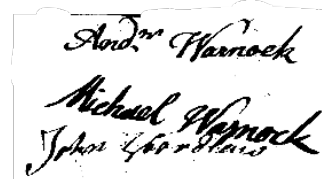 Andw Warnock
Michael Warnock
John